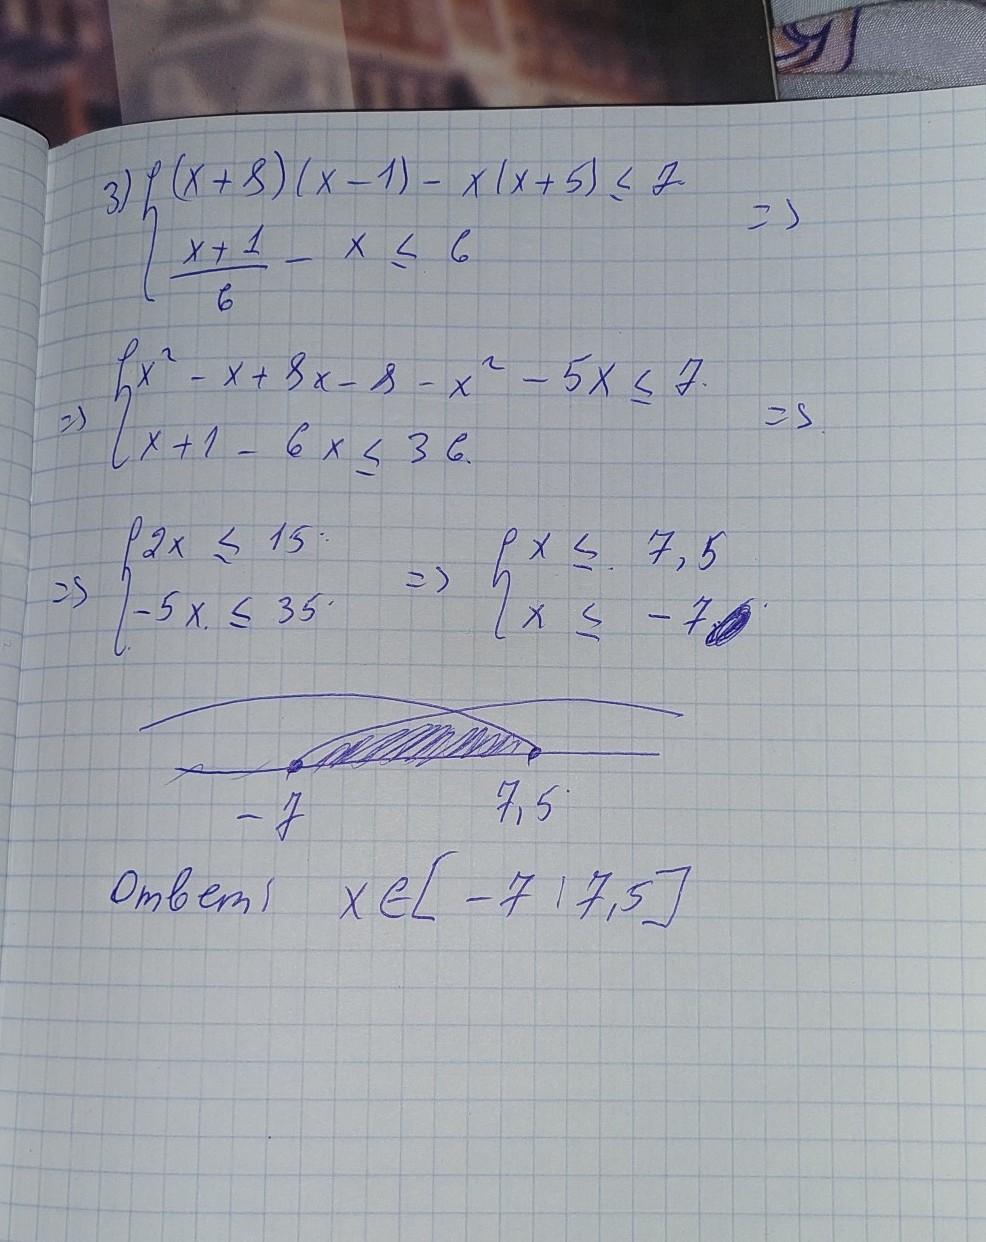 3) { (x+8)(x-1) - x(x+5) ≤ 7 =>
{ (x+1)/6 - x ≤ 6
=> { x² - x + 8x - 8 - x² - 5x ≤ 7. =>
{ x + 1 - 6x ≤ 36.
=> { 2x ≤ 15 => { x ≤ 7,5
{ -5x ≤ 35 { x ≤ -7
-7 7,5
Ответ: x ∈ [-7; 7,5]